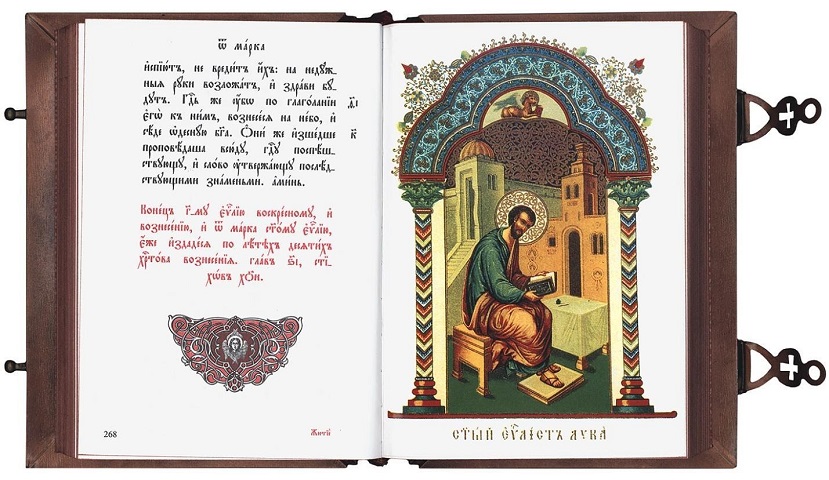 Ѿ ма́рка
и҆спїю́тъ, не вреди́тъ и҆́хъ: на недꙋ́ж-
ныѧ рꙋ́ки возложа́тъ, и҆ здра́ви бꙋ́-
дꙋтъ. Гдⷭ҇ь же ᲂу҆́бѡ по глаго́ланїи ѳ҃і
є҆гѡ̀ къ ни̑мъ, вознесе́сѧ на не́бо, и҆
сѣ́де ѡ҆деснꙋ́ю бг҃а. Ѻ҆ни́ же и҆зше́дше к҃
проповѣ́даша всю́дꙋ, гдⷭ҇ꙋ поспѣш-
ствꙋ́ющꙋ, и҆ сло́во ᲂу҆твержа́ющꙋ послѣ́д-
ствꙋющими зна́меньми. а҆ми́нь.
Коне́цъ г҃-мꙋ є҆ѵⷢ҇лїю воскре́сномꙋ, и҆
вознесе́нїю, и҆ ѿ ма́рка ст҃о́мꙋ є҆ѵⷢ҇лїю,
є҆́же и҆здаде́сѧ по лѣ́тѣхъ десѧти́хъ
хрⷭ҇то́ва вознесе́нїѧ. гла́въ ѕ҃і, сті-
хѡ́въ
268
ст҃ы́й є҆ѵⷢ҇лі́стъ лꙋка̀